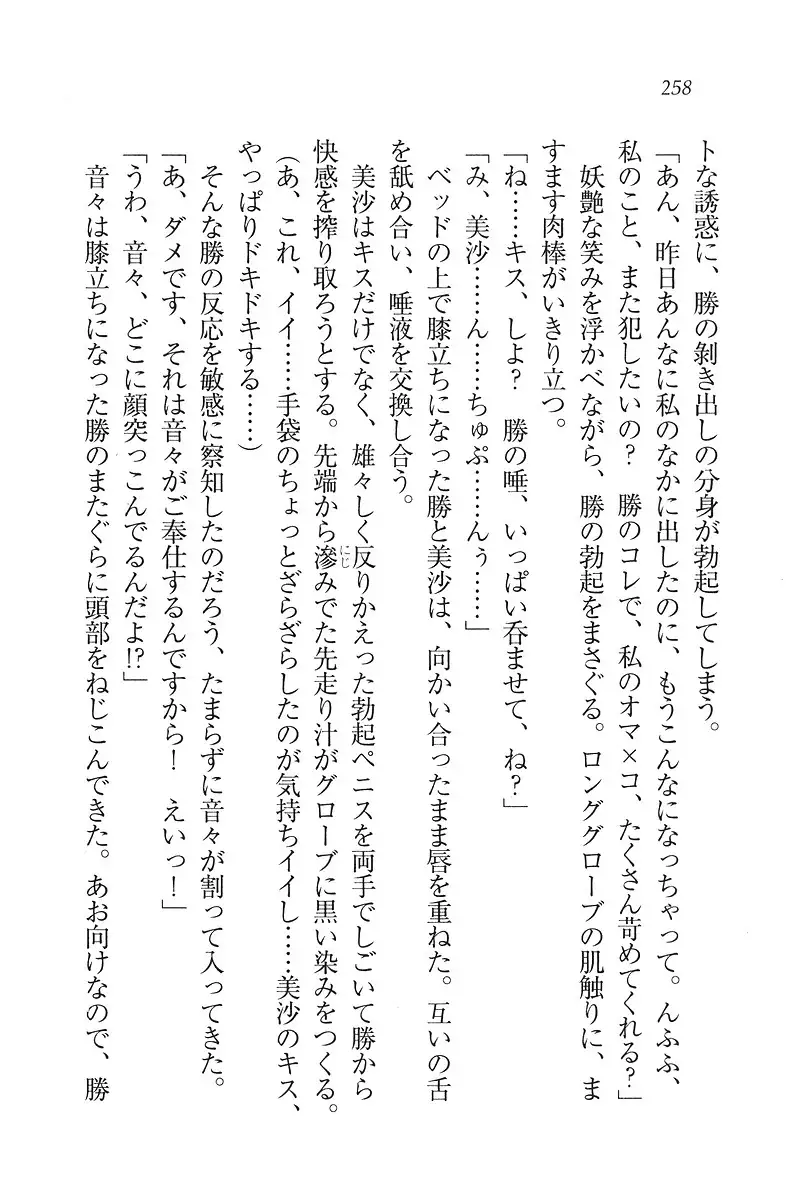 258
トな誘惑に、勝の剥き出しの分身が勃起してしまう。
「あん、昨日あんなに私のなかに出したのに、もうこんなになっちゃって。んふふ、
私のこと、また犯したいの？　勝のコレで、私のオマ×コ、たくさん苛めてくれる？」
妖艶な笑みを浮かべながら、勝の勃起をまさぐる。ロンググローブの肌触りに、ま
すます肉棒がいきり立つ。
「ね……キス、しよ？　勝の唾、いっぱい呑ませて、ね？」
「み、美沙……ん……ちゅぷ……んぅ……」
ベッドの上で膝立ちになった勝と美沙は、向かい合ったまま唇を重ねた。互いの舌
を舐め合い、唾液を交換し合う。
美沙はキスだけでなく、雄々しく反りかえった勃起ペニスを両手でしごいて勝から
快感を搾り取ろうとする。先端から滲みでた先走り汁がグローブに黒い染みをつくる。
にじ
(あ、これ、イイ……手袋のちょっとざらざらしたのが気持ちイイし……美沙のキス、
やっぱりドキドキする……)
そんな勝の反応を敏感に察知したのだろう、たまらずに音々が割って入ってきた。
「あ、ダメです、それは音々がご奉仕するんですから！　えいっ！」
「うわ、音々、どこに顔突っこんでるんだよ!?」
音々は膝立ちになった勝のまたぐらに頭部をねじこんできた。あお向けなので、勝